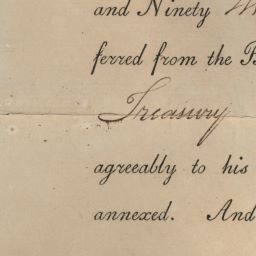 and Ninety
ferred from the
Treasury
agreeably to his
annexed. And